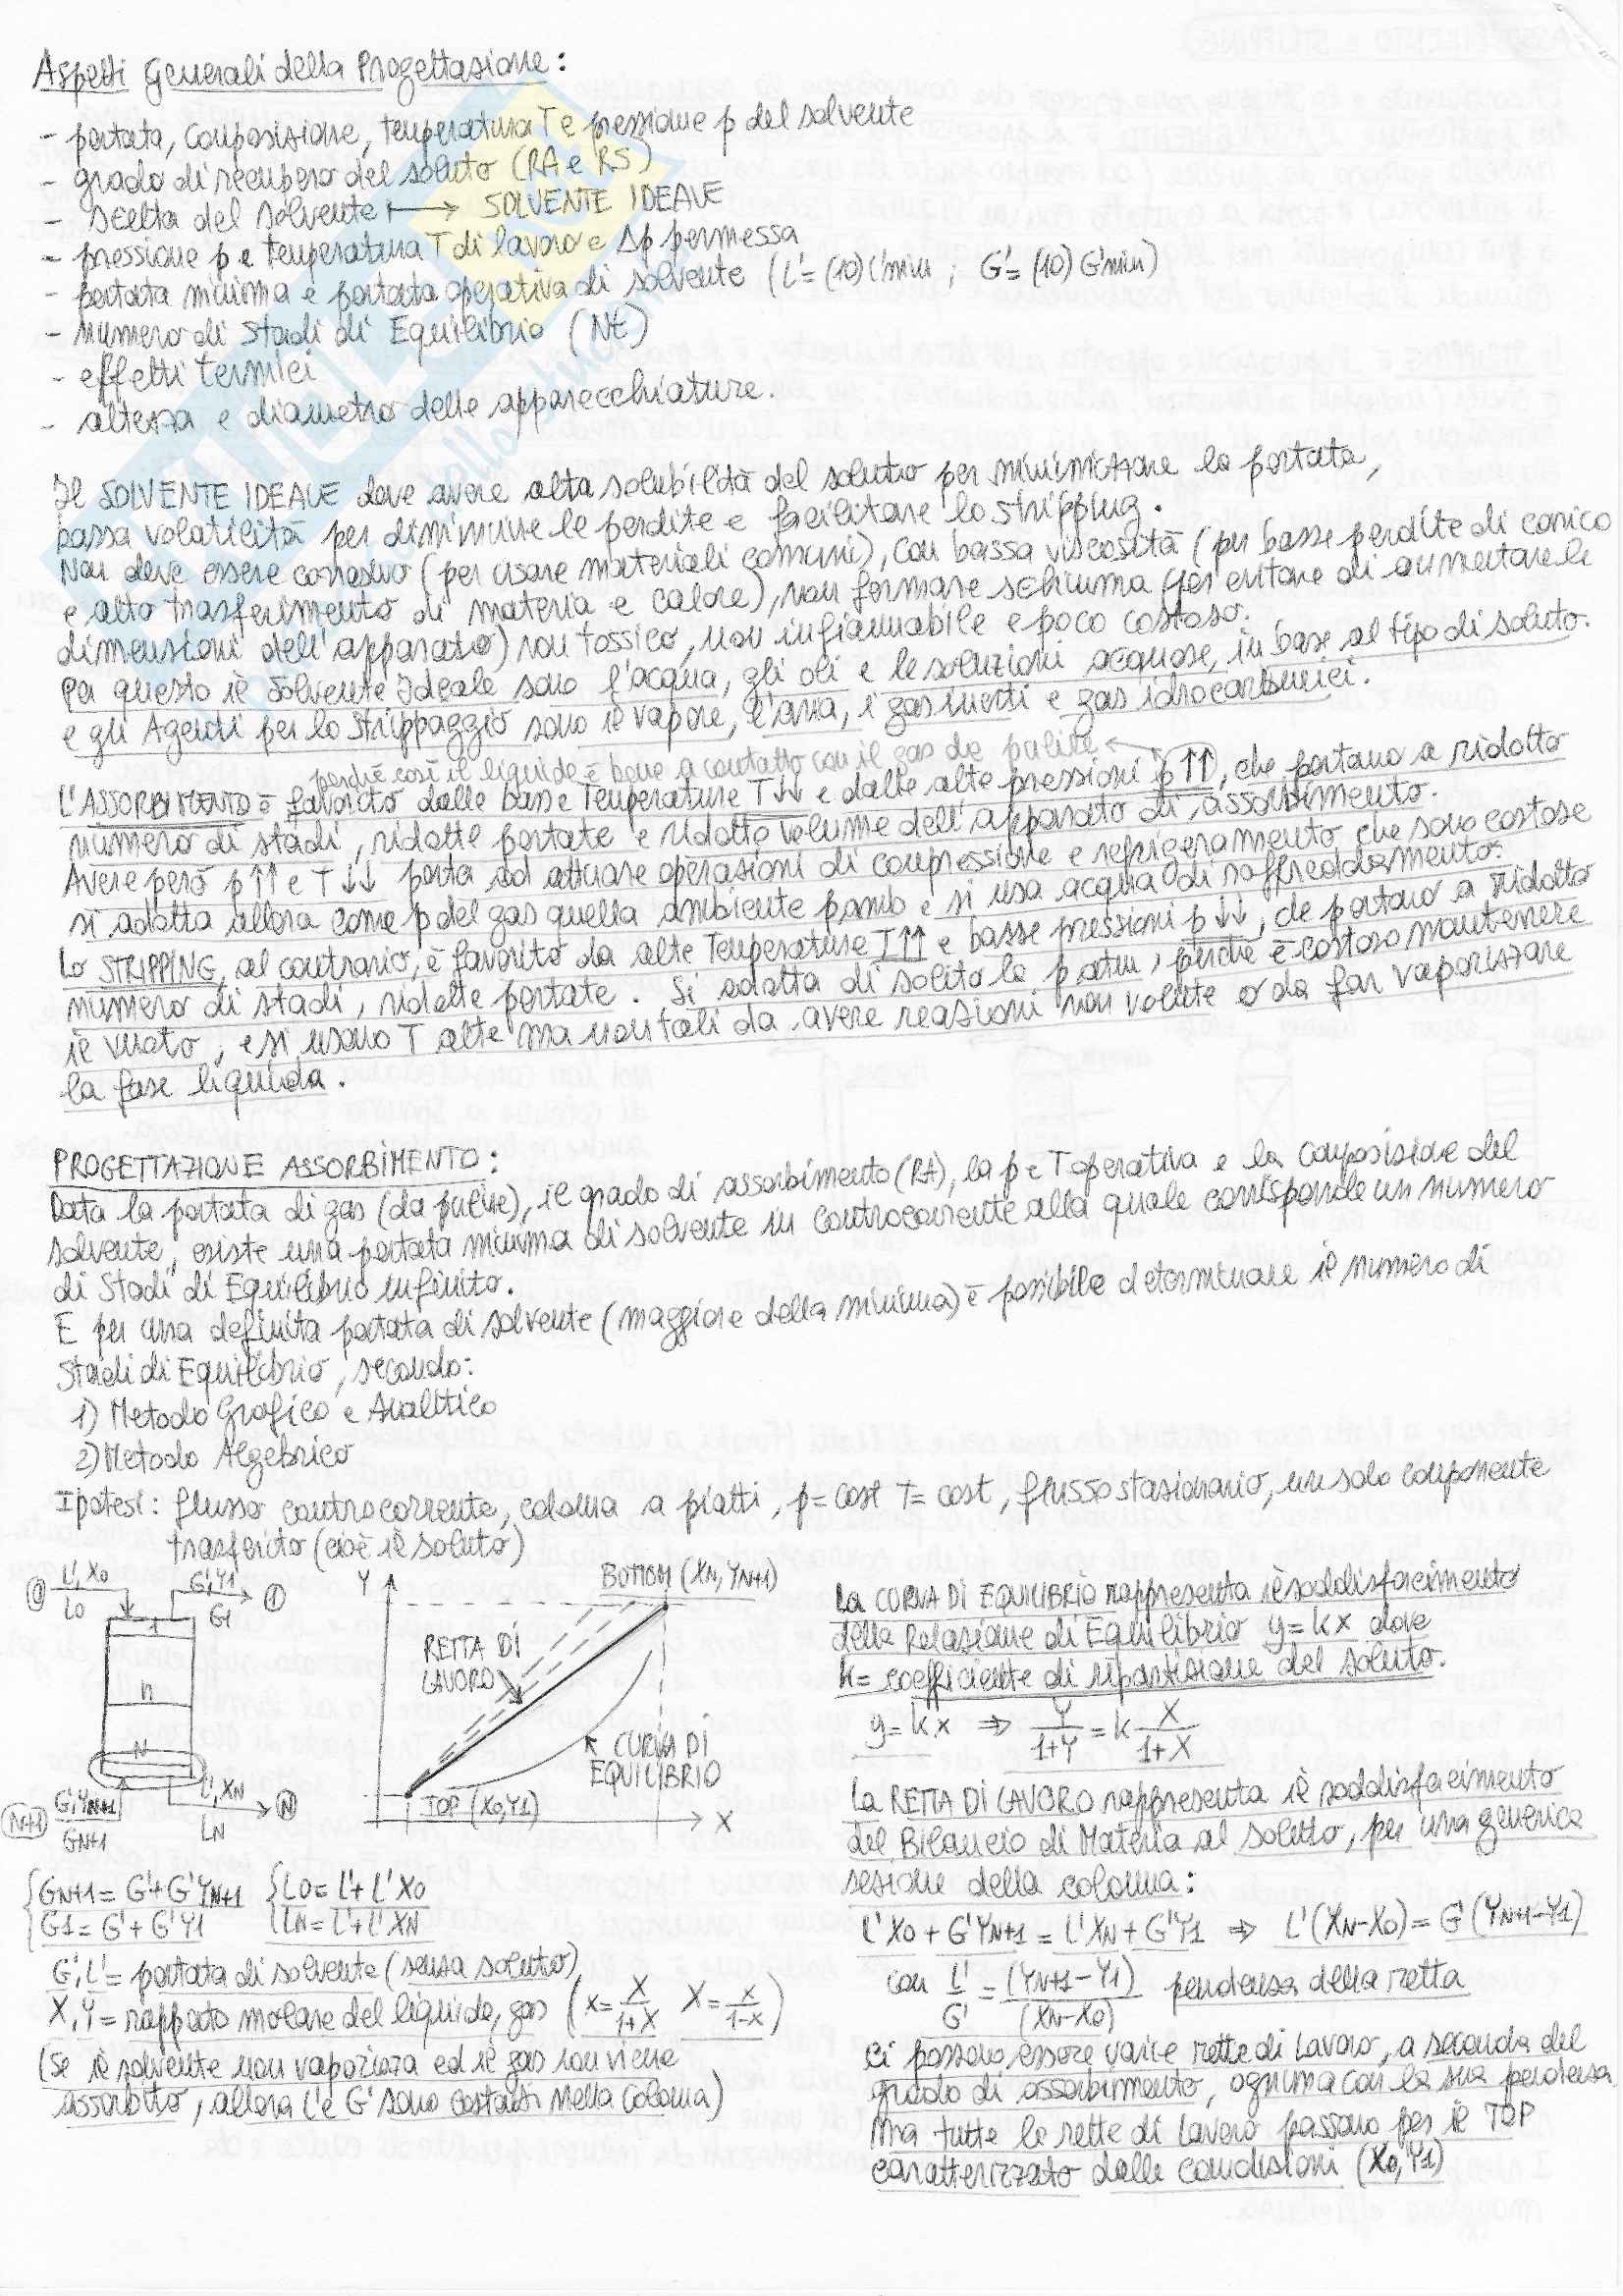 Aspetti Generali della Progettazione:
- portata, composizione, temperatura T e pressione p del solvente
- grado di recupero del soluto (RA e RS)
- scelta del solvente ⟼ SOLVENTE IDEALE
- pressione p e temperatura T di lavoro e Δp permessa
- portata minima e portata operativa di solvente (L'= (10) L'min ; G'= (10) G'min)
- numero di stadi di Equilibrio (Nt)
- effetti termici
- altezza e diametro delle apparecchiature.
Il SOLVENTE IDEALE deve avere alta solubilità del soluto per minimizzare la portata,
bassa volatilità per diminuire le perdite e facilitare lo stripping.
Non deve essere corrosivo (per usare materiali comuni), con bassa viscosità (per basse perdite di carico
e alto trasferimento di materia e calore), non formare schiuma (per evitare di aumentare le
dimensioni dell'apparato) non tossico, non infiammabile e poco costoso.
Per questo il Solvente Ideale sono l'acqua, gli oli e le soluzioni acquose, in base al tipo di soluto.
e gli Agenti per lo strippaggio sono il vapore, l'aria, i gas inerti e gas idrocarburici.
perchè così il liquido è bene a contatto con il gas da pulire
L'ASSORBIMENTO è favorito dalle basse Temperature T↓↓ e dalle alte pressioni p↑↑, che portano a ridotto
numero di stadi, ridotte portate e ridotto volume dell'apparato di assorbimento.
Avere però p↑↑ e T↓↓ porta ad attuare operazioni di compressione e refrigeramento che sono costose
si adotta allora come p del gas quella ambiente pamb e si usa acqua di raffreddamento.
Lo STRIPPING, al contrario, è favorito da alte Temperature T↑↑ e basse pressioni p↓↓, che portano a ridotto
numero di stadi, ridotte portate. Si adotta di solito la p atm, perchè è costoso mantenere
il vuoto, e si usano T alte ma non tali da avere reazioni non volute o da far vaporizzare
la fase liquida.
PROGETTAZIONE ASSORBIMENTO:
Data la portata di gas (da pulire), il grado di assorbimento (RA), la p e T operativa e la composizione del
solvente, esiste una portata minima di solvente in controcorrente alla quale corrisponde un numero
di Stadi di Equilibrio infinito.
E per una definita portata di solvente (maggiore della minima) è possibile determinare il numero di
Stadi di Equilibrio, secondo:
1) Metodo Grafico e Analitico
2) Metodo Algebrico
Ipotesi: flusso controcorrente, colonna a piatti, p= cost T= cost, flusso stazionario, un solo componente
trasferito (cioè il soluto)
0 L', X0 L0
G', Y1 G1 1
1
n
N
N+1 G', YN+1 GN+1
L', XN LN N
Y
BOTTOM (XN, YN+1)
RETTA DI
LAVORO
CURVA DI
EQUILIBRIO
TOP (X0, Y1)
X
GN+1= G'+G'YN+1 L0= L'+ L'X0
G1= G' + G'Y1 LN= L'+L'XN
G', L'= portata di solvente (senza soluto)
X, Y= rapporto molare del liquido, gas (x= X/1+X X= x/1-x)
(Se il solvente non vaporizza ed il gas non viene
assorbito, allora L' e G' sono costanti nella colonna)
La CURVA DI EQUILIBRIO rappresenta il soddisfacimento
della Relazione di Equilibrio y= kx dove
k= coefficiente di ripartizione del soluto.
y= k x ⇒ Y/1+Y = k X/1+X
La RETTA DI LAVORO rappresenta il soddisfacimento
del Bilancio di Materia al soluto, per una generica
sezione della colonna:
L'X0 + G'YN+1 = L'XN + G'Y1 ⇒ L'(XN-X0)= G'(YN+1-Y1)
con L'/G' = (YN+1-Y1)/(XN-X0) pendenza della retta
Ci possono essere varie rette di Lavoro, a seconda del
grado di assorbimento, ognuna con la sua pendenza
ma tutte le rette di Lavoro passano per il TOP
caratterizzato dalle condizioni (X0, Y1)